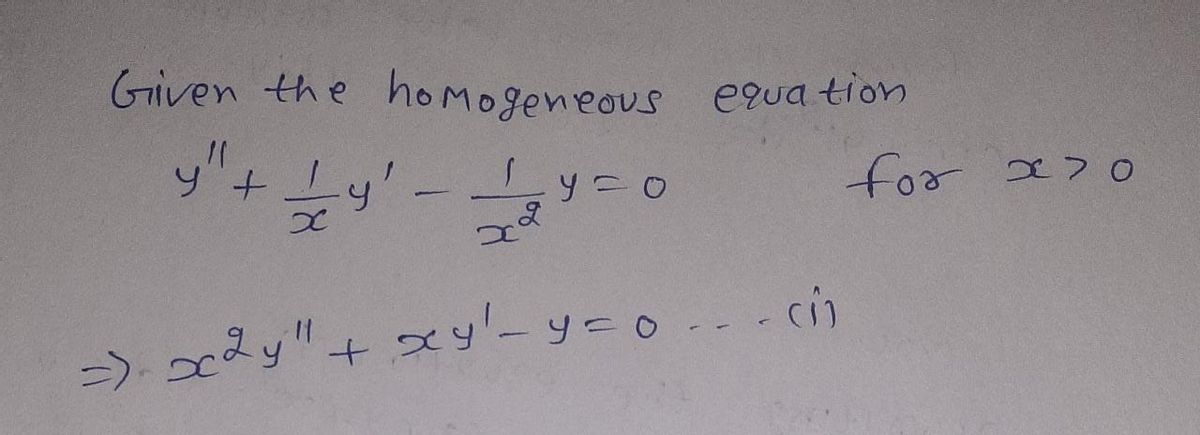 Given the homogeneous equation
y'' + 1/x y' - 1/x² y = 0 for x > 0
=> x²y'' + xy' - y = 0 ... (i)